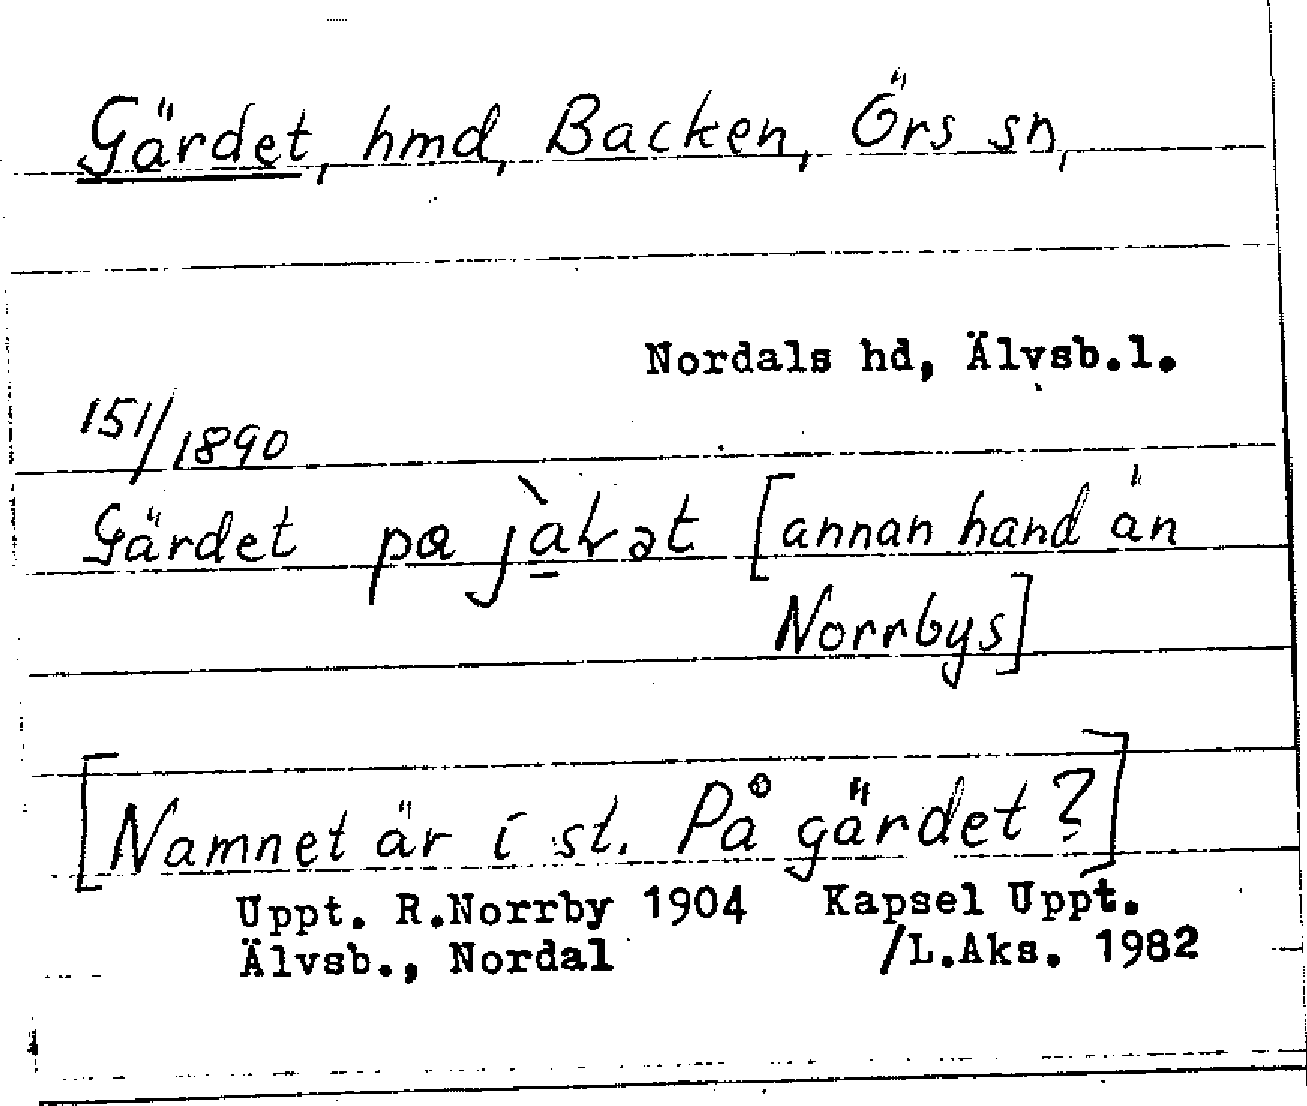 Gärdet, hmd, Backen, Örs sn,
Nordals hd, Älvsb.l.
151/1890
Gärdet pa [annan hand än
Norrbys]
[Namnet är i st. På gärdet?]
Uppt. R.Norrby 1904 Kapsel Uppt.
Älvsb., Nordal /L.Aks. 1982